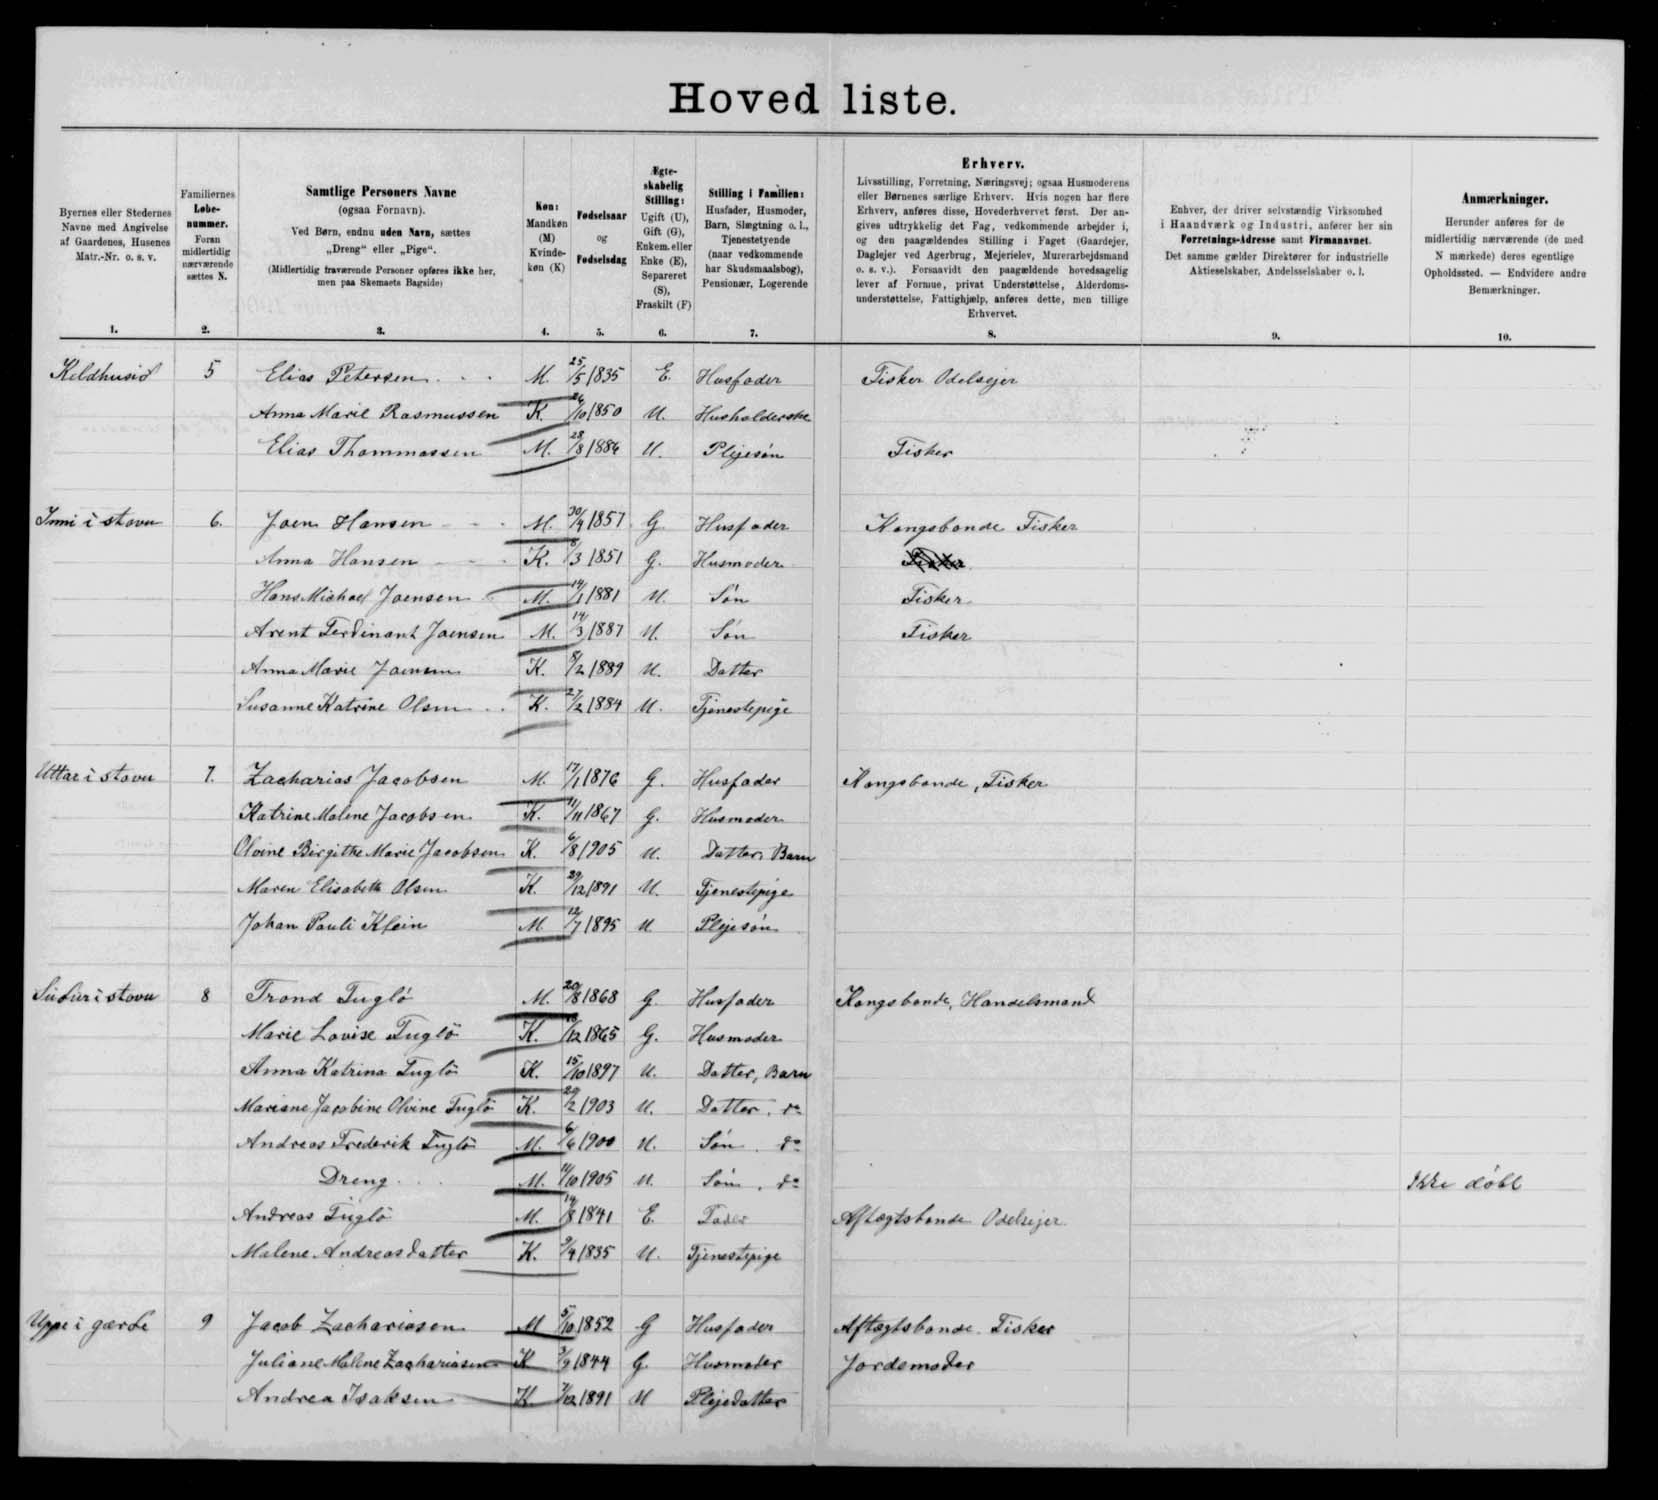 Hoved liste.
Byernes eller Stedernes Navne med Angivelse af Gaardenes, Husenes Matr.-Nr. o. s. v.
Familiernes Løbenummer. Foran midlertidig nærværende sættes N.
Samtlige Personers Navne (ogsaa Fornavn). Ved Børn, endnu uden Navn, sættes „Dreng" eller „Pige". (Midlertidig fraværende Personer opføres ikke her, men paa Skemaets Bagside)
Køn: Mandkøn (M) Kvindekøn (K)
Fødselsaar og Fødselsdag
Ægteskabelig Stilling: Ugift (U), Gift (G), Enkem. eller Enke (E), Separeret (S), Fraskilt (F)
Stilling i Familien: Husfader, Husmoder, Barn, Slægtning o. l., Tjenestetyende (naar vedkommende har Skudsmaalsbog), Pensionær, Logerende
Erhverv. Livsstilling, Forretning, Næringsvej; ogsaa Husmoderens eller Børnenes særlige Erhverv. Hvis nogen har flere Erhverv, anføres disse, Hovederhvervet først. Der angives udtrykkelig det Fag, vedkommende arbejder i, og den paagældendes Stilling i Faget (Gaardejer, Daglejer ved Agerbrug, Mejerielev, Murerarbejdsmand o. s. v.). Forsaavidt den paagældende hovedsagelig lever af Formue, privat Understøttelse, Alderdomsunderstøttelse, Fattighjælp, anføres dette, men tillige Erhvervet.
Enhver, der driver selvstændig Virksomhed i Haandværk og Industri, anfører her sin Forretnings-Adresse samt Firmanavnet. Det samme gælder Direktører for industrielle Aktieselskaber, Andelsselskaber o. l.
Anmærkninger. Herunder anføres for de midlertidig nærværende (de med N mærkede) deres egentlige Opholdssted. — Endvidere andre Bemærkninger.
1. 2. 3. 4. 5. 6. 7. 8. 9. 10.
Keldhusid 5 Elias Petersen M. 25/5 1835 E. Husfader Fisker Odelsejer
Anna Marie Rasmussen K. 26/10 1850 U. Husholderske
Elias Thommassen M. 28/8 1886 U. Plejesøn Fisker
Inni i stovu 6. Joen Hansen M. 30/9 1857 G. Husfader Kongsbonde Fisker
Anna Hansen K. 8/3 1851 G. Husmoder
Hans Michael Joensen M. 14/1 1881 U. Søn Fisker
Arent Ferdinant Joensen M. 14/3 1887 U. Søn Fisker
Anna Marie Joensen K. 8/2 1889 U. Datter
Susanne Katrine Olsen K. 27/2 1884 U. Tjenestepige
Uttar i stovu 7. Zacharias Jacobsen M. 17/1 1876 G. Husfader Kongsbonde, Fisker
Katrine Malene Jacobsen K. 11/11 1867 G. Husmoder
Olvine Birgithe Marie Jacobsen K. 6/8 1905 U. Datter, Barn
Maren Elisabeth Olsen K. 29/12 1891 U. Tjenestepige
Johan Pauli Klein M 12/7 1895 U Plejesøn
Sudur i stovu 8 Trond Fuglö M. 20/8 1868 G. Husfader Kongsbonde, Handelsmand
Marie Lovise Fuglö K. /12 1865 G. Husmoder
Anna Katrina Fuglö K. 15/10 1897 U. Datter, Barn
Mariane Jacobine Olvine Fuglö K. 20/2 1903 U. Datter, do
Andreas Frederik Fuglö M. 6/6 1900 U. Søn, do
Dreng M. 11/10 1905 U. Søn, do Ikke døbt
Andreas Fuglö M. 14/8 1841 E. Fader Aftægtsbonde Odelsejer
Malene Andreasdatter K. 9/9 1835 U. Tjenestepige
Uppe i gærde 9 Jacob Zachariasen M 5/10 1852 G Husfader Aftægtsbonde. Fisker
Juliane Malene Zachariasen K 3/9 1844 G. Husmoder Jordemoder
Andrea Isaksen K. 7/12 1891 U Plejedatter